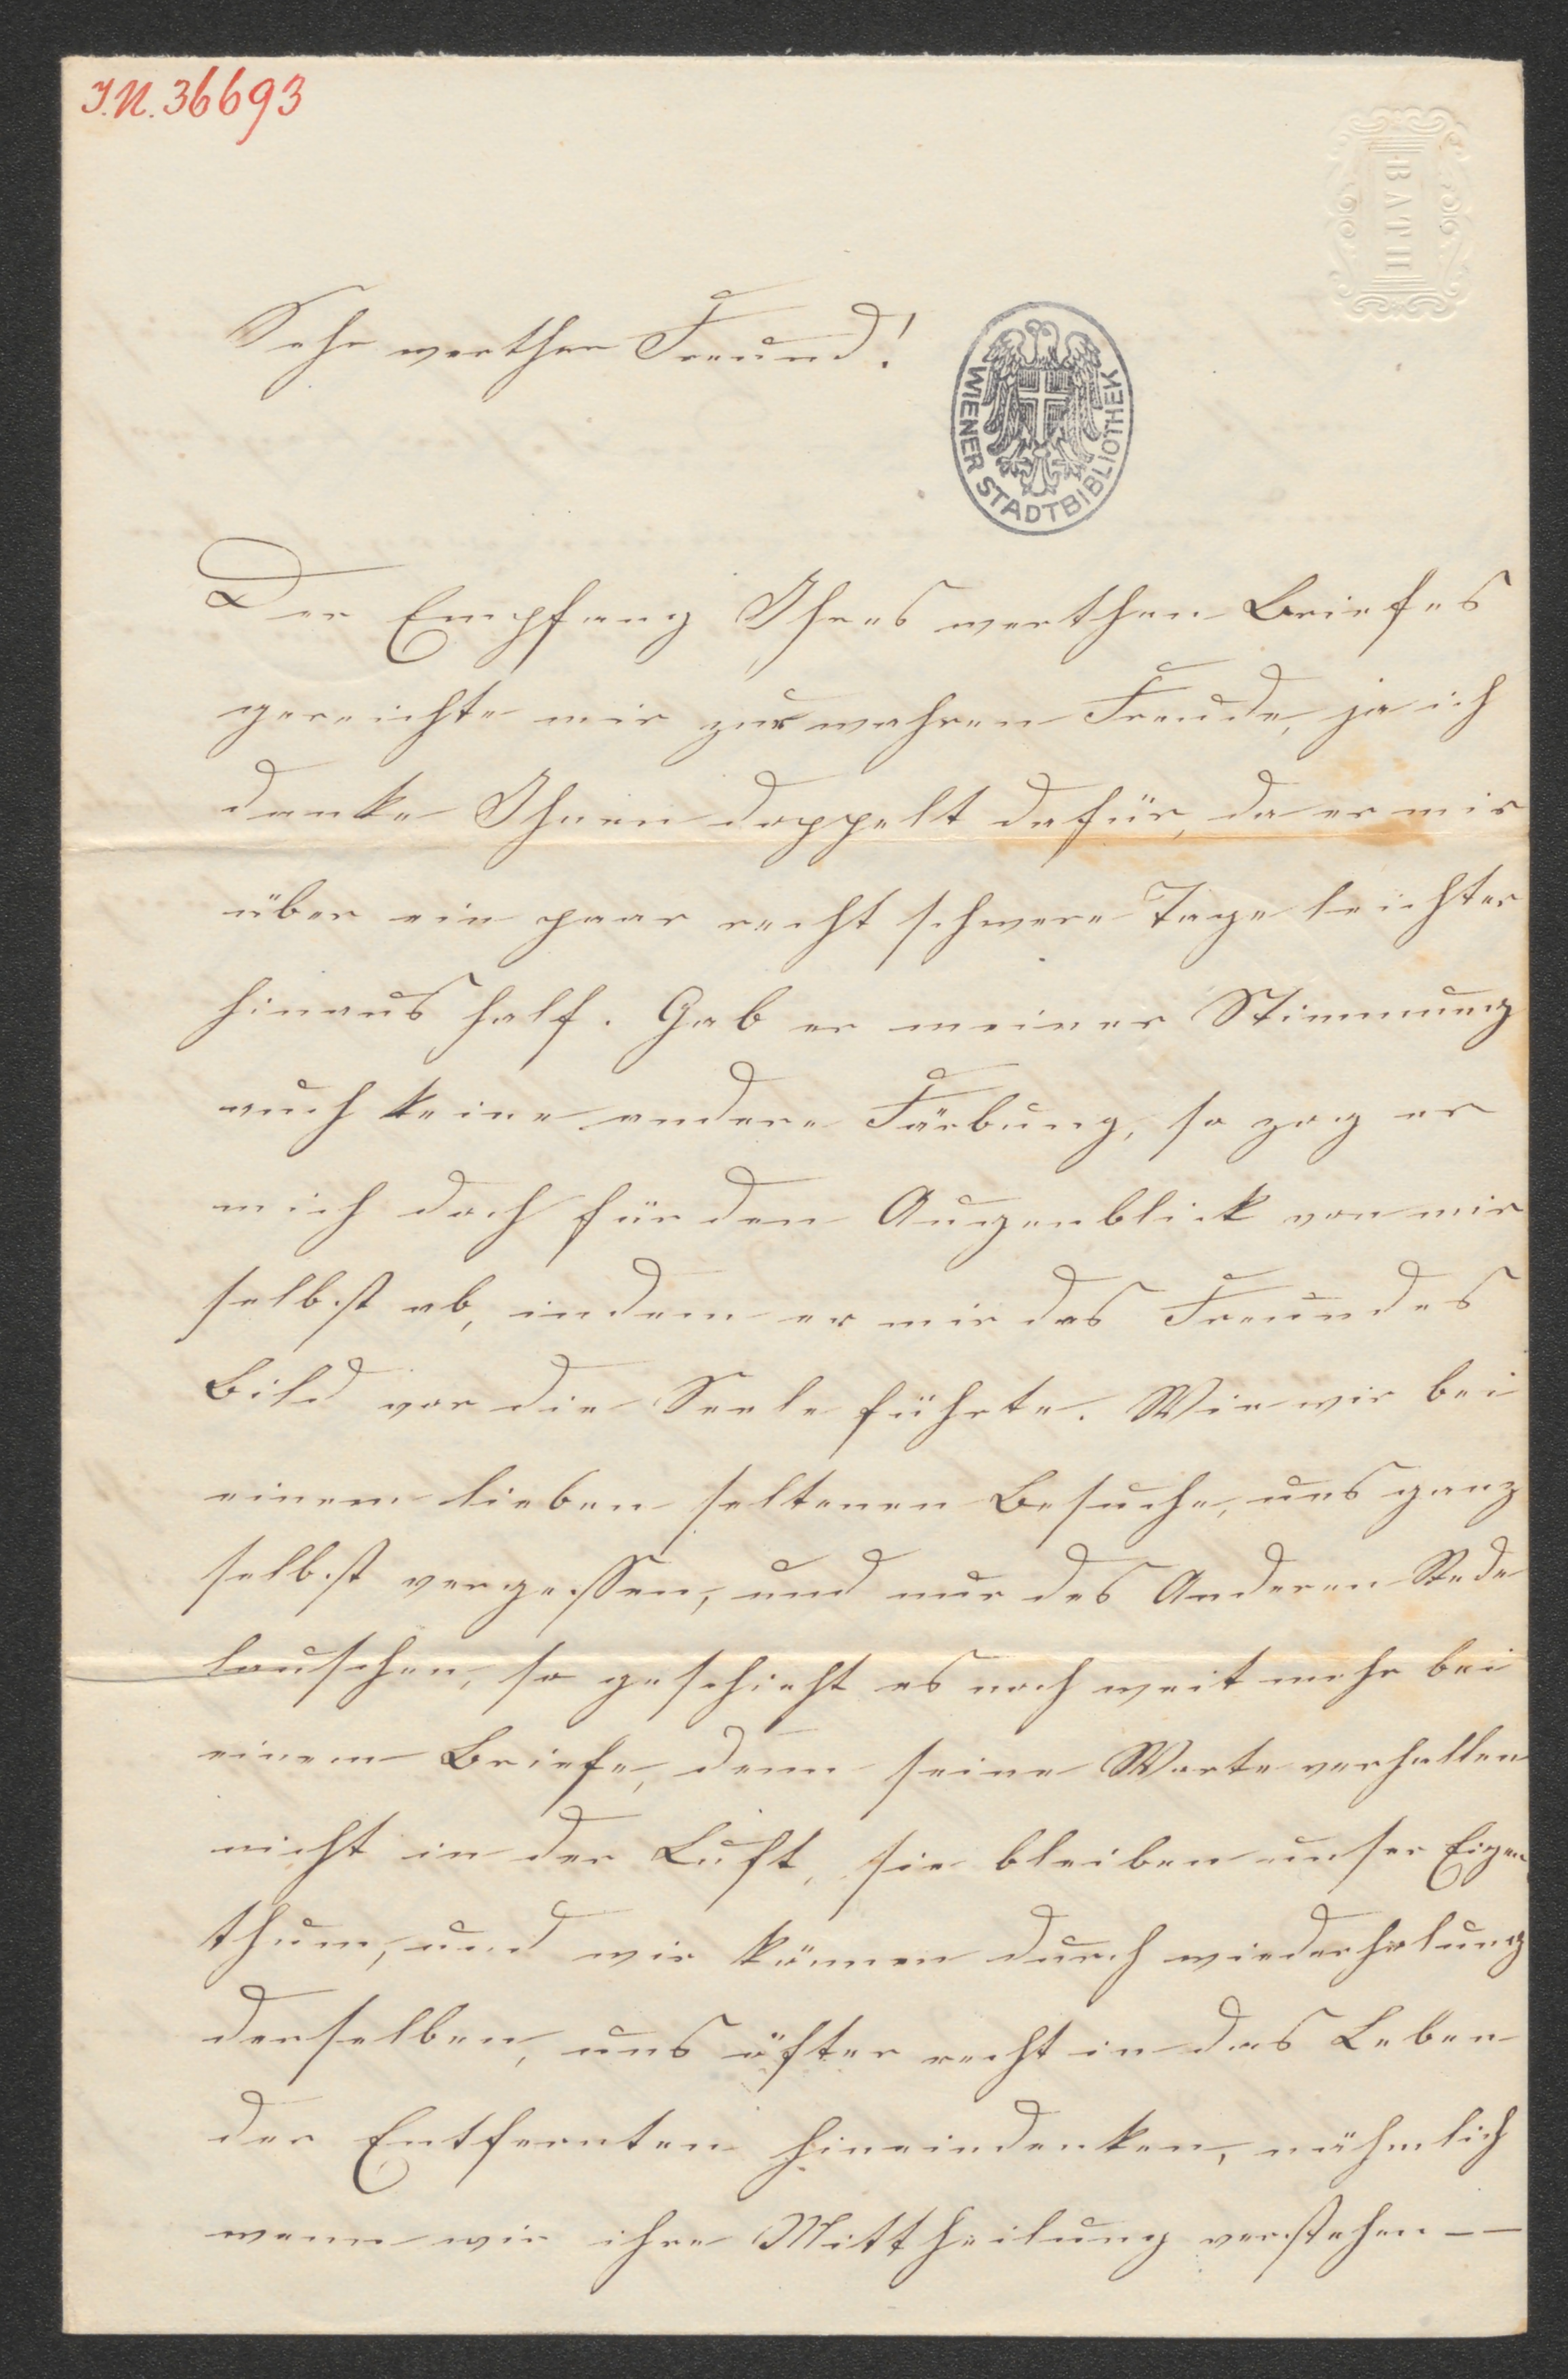 I.N. 36693
BATH
Sehr werther Freund!
WIENER STADTBIBLIOTHEK
Der Empfang Ihres werthen Briefes
gereichte mir zur wahren Freude, ja ich
danke Ihnen doppelt dafür, da er mir
über ein paar recht schwere Tage leichter
hinaus half. Gab er meiner Stimmung
auch keine andere Färbung, so zog er
mich doch für den Augenblick von mir
selbst ab, indem er mir des Freundes
Bild vor die Seele führte. Wie wir bei
einem lieben seltenen Besuche, uns ganz
selbst vergessen, und nur des Anderen Rede
lauschen, so geschieht es noch weit mehr bei
einem Briefe, denn seine Worte verhallen
nicht in der Luft, sie bleiben unser Eigen
thum, und wir können durch wiederholung
derselben, uns öfter recht in das Leben
der Entfernten hineindenken, nähmlich
wenn wir ihre Mittheilung verstehen — —